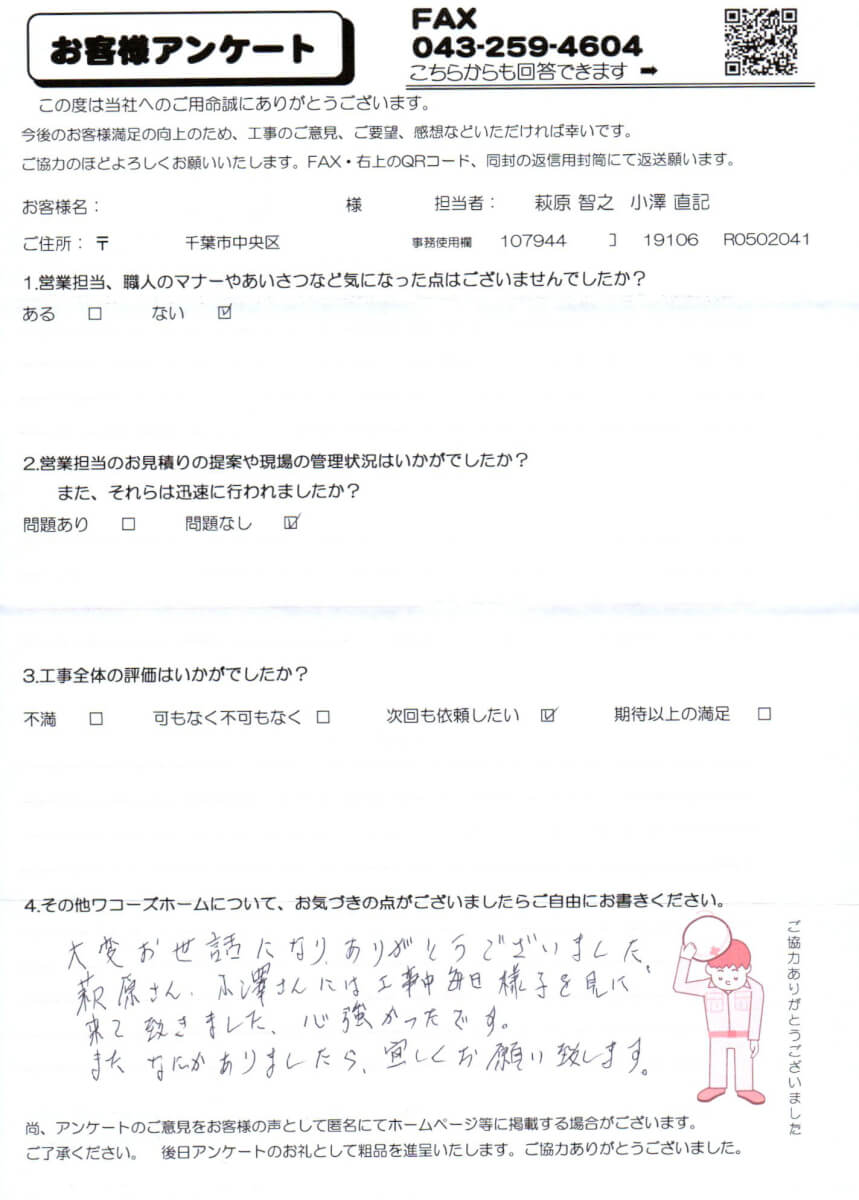 お客様アンケート
FAX
043-259-4604
こちらからも回答できます ➡
この度は当社へのご用命誠にありがとうございます。
今後のお客様満足の向上のため、工事のご意見、ご要望、感想などいただければ幸いです。
ご協力のほどよろしくお願いいたします。FAX・右上のQRコード、同封の返信用封筒にて返送願います。
お客様名： 様 担当者： 萩原 智之 小澤 直記
ご住所：〒 千葉市中央区 事務使用欄 107944 コ 19106 R0502041
1.営業担当、職人のマナーやあいさつなど気になった点はございませんでしたか？
ある □ ない ☑
2.営業担当のお見積りの提案や現場の管理状況はいかがでしたか？
また、それらは迅速に行われましたか？
問題あり □ 問題なし ☑
3.工事全体の評価はいかがでしたか？
不満 □ 可もなく不可もなく □ 次回も依頼したい ☑ 期待以上の満足 □
4.その他ワコーズホームについて、お気づきの点がございましたらご自由にお書きください。
大変お世話になり、ありがとうございました。
萩原さん、小澤さんには工事中毎日様子を見に
来て致きました、心強かったです。
またなにかありましたら、宜しくお願い致します。
ご協力ありがとうございました
尚、アンケートのご意見をお客様の声として匿名にてホームページ等に掲載する場合がございます。
ご了承ください。 後日アンケートのお礼として粗品を進呈いたします。ご協力ありがとうございました。